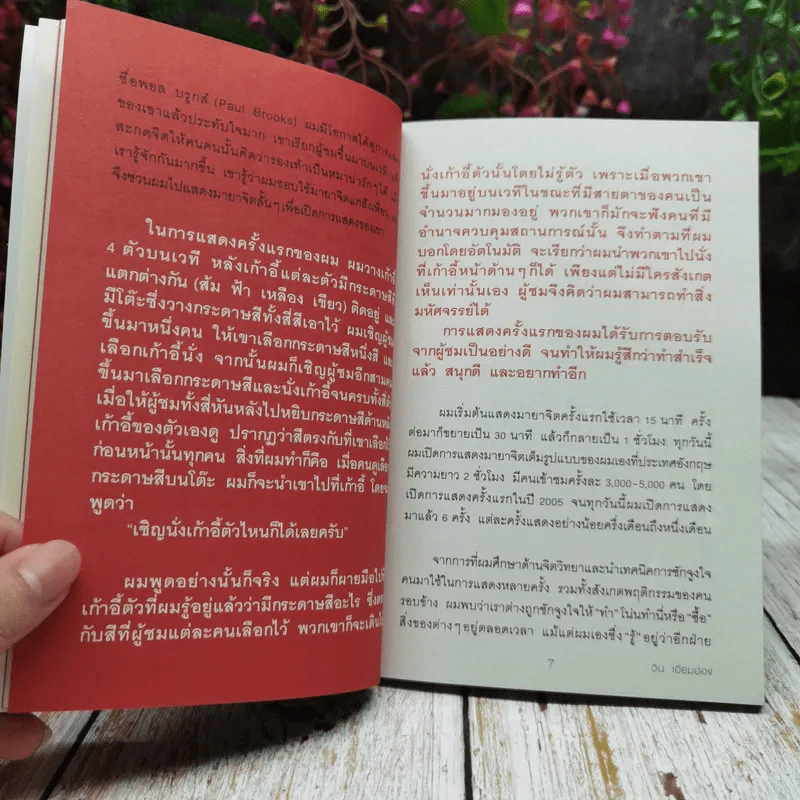 ชื่อพอล บรูกส์ (Paul Brooks) ผมมีโอกาสได้ดูการแสดง
ของเขาแล้วประทับใจมาก เขาเรียกผู้ชมขึ้นมาบนเวที
สะกดจิตให้คนคนนั้นคิดว่ารองเท้าเป็นหมาน่ารักๆ ได้
เรารู้จักกันมากขึ้น เขารู้ว่าผมชอบใช้มายาจิตแกล้งเพื่อน
จึงชวนผมไปแสดงมายาจิตสั้นๆ เพื่อเปิดการแสดงของเขา
ในการแสดงครั้งแรกของผม ผมวางเก้าอี้
4 ตัวบนเวที หลังเก้าอี้แต่ละตัวมีกระดาษสี
แตกต่างกัน (ส้ม ฟ้า เหลือง เขียว) ติดอยู่
มีโต๊ะซึ่งวางกระดาษสีทั้งสี่สีเอาไว้ ผมเชิญผู้ชม
ขึ้นมาหนึ่งคน ให้เขาเลือกกระดาษสีหนึ่งสี
เลือกเก้าอี้นั่ง จากนั้นผมก็เชิญผู้ชมอีกสามคน
ขึ้นมาเลือกกระดาษสีและนั่งเก้าอี้จนครบทั้งสี่
เมื่อให้ผู้ชมทั้งสี่หันหลังไปหยิบกระดาษสีด้านหลัง
เก้าอี้ของตัวเองดู ปรากฏว่าสีตรงกับที่เขาเลือก
ก่อนหน้านั้นทุกคน สิ่งที่ผมทำก็คือ เมื่อคนดูเลือก
กระดาษสีบนโต๊ะ ผมก็จะนำเขาไปที่เก้าอี้
พูดว่า
“เชิญนั่งเก้าอี้ตัวไหนก็ได้เลยครับ”
ผมพูดอย่างนั้นก็จริง แต่ผมก็ผายมือไป
เก้าอี้ตัวที่ผมรู้อยู่แล้วว่ามีกระดาษสีอะไร
กับสีที่ผู้ชมแต่ละคนเลือกไว้ พวกเขาก็จะเดิน
นั่งเก้าอี้ตัวนั้นโดยไม่รู้ตัว เพราะเมื่อพวกเขา
ขึ้นมาอยู่บนเวทีในขณะที่มีสายตาของคนเป็น
จำนวนมากมองอยู่ พวกเขาก็มักจะฟังคนที่มี
อำนาจควบคุมสถานการณ์นั้น จึงทำตามที่ผม
บอกโดยอัตโนมัติ จะเรียกว่าผมนำพวกเขาไปนั่ง
ที่เก้าอี้หน้าด้านๆ ก็ได้ เพียงแต่ไม่มีใครสังเกต
เห็นเท่านั้นเอง ผู้ชมจึงคิดว่าผมสามารถทำสิ่ง
มหัศจรรย์ได้
การแสดงครั้งแรกของผมได้รับการตอบรับ
จากผู้ชมเป็นอย่างดี จนทำให้ผมรู้สึกว่าทำสำเร็จ
แล้ว สนุกดี และอยากทำอีก
ผมเริ่มต้นแสดงมายาจิตครั้งแรกใช้เวลา 15 นาที ครั้ง
ต่อมาก็ขยายเป็น 30 นาที แล้วก็กลายเป็น 1 ชั่วโมง ทุกวันนี้
ผมเปิดการแสดงมายาจิตเต็มรูปแบบของผมเองที่ประเทศอังกฤษ
มีความยาว 2 ชั่วโมง มีคนเข้าชมครั้งละ 3,000-5,000 คน โดย
เปิดการแสดงครั้งแรกในปี 2005 จนทุกวันนี้ผมเปิดการแสดง
มาแล้ว 6 ครั้ง แต่ละครั้งแสดงอย่างน้อยครึ่งเดือนถึงหนึ่งเดือน
จากการที่ผมศึกษาด้านจิตวิทยาและนำเทคนิคการชักจูงใจ
คนมาใช้ในการแสดงหลายครั้ง รวมทั้งสังเกตพฤติกรรมของคน
รอบข้าง ผมพบว่าเราต่างถูกชักจูงใจให้ “ทำ” โน่นทำนี่หรือ “ซื้อ”
สิ่งของต่างๆ อยู่ตลอดเวลา แม้แต่ผมเองซึ่ง “รู้” อยู่ว่าอีกฝ่าย
7
วิน เอียมอ่อง